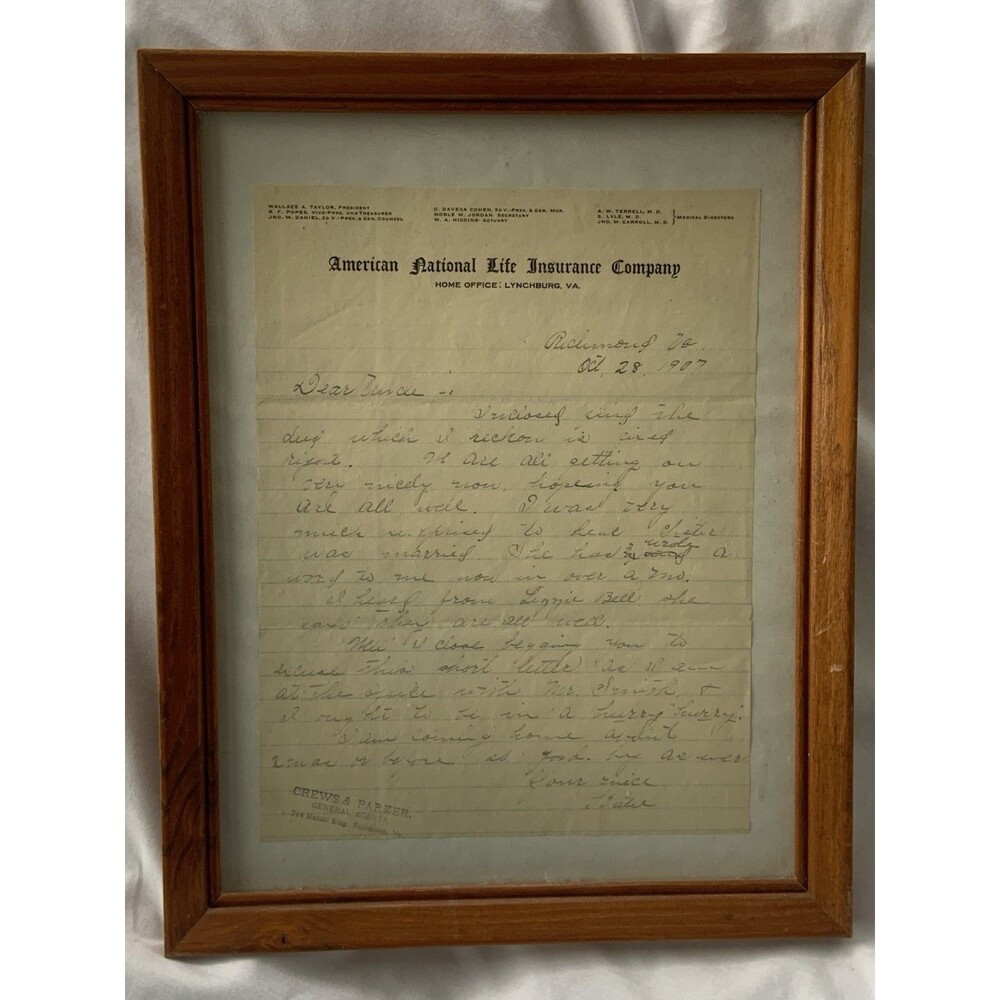 WALLACE A. TAYLOR, PRESIDENT
R. F. POPES, VICE-PRES. AND TREASURER
JNO. W. DANIEL, 3D V.-PRES. & GEN. COUNSEL
C. DAVEGA COHEN, 2D V.-PRES. & GEN. MGR.
NOBLE M. JORDAN, SECRETARY
W. A. HIGGINS, ACTUARY
A. W. TERRELL, M. D.
S. LYLE, M. D.
JNO. W. CARROLL, M. D.
MEDICAL DIRECTORS
American National Life Insurance Company
HOME OFFICE: LYNCHBURG, VA.
Richmond Va.
Oct. 28, 1907
Dear Uncle -:
Inclosed find the
deed which I reckon is fixed
right. We are all getting on
very nicely now, hoping you
are all well. I was very
much surprised to hear Sister
was married. She has wrote a
word to me now in over a mo.
I heard from Lizzie Bell she
says they are all well.
Well I close begging you to
excuse this short letter as I am
at the office with Mr. Smith, &
I ought to be in a "hurry hurry".
I am coming home about
Xmas or before so good-by as ever
Your niece
CREWS & PARKER,
GENERAL AGENTS,
Mutual Bldg. Richmond, Va.